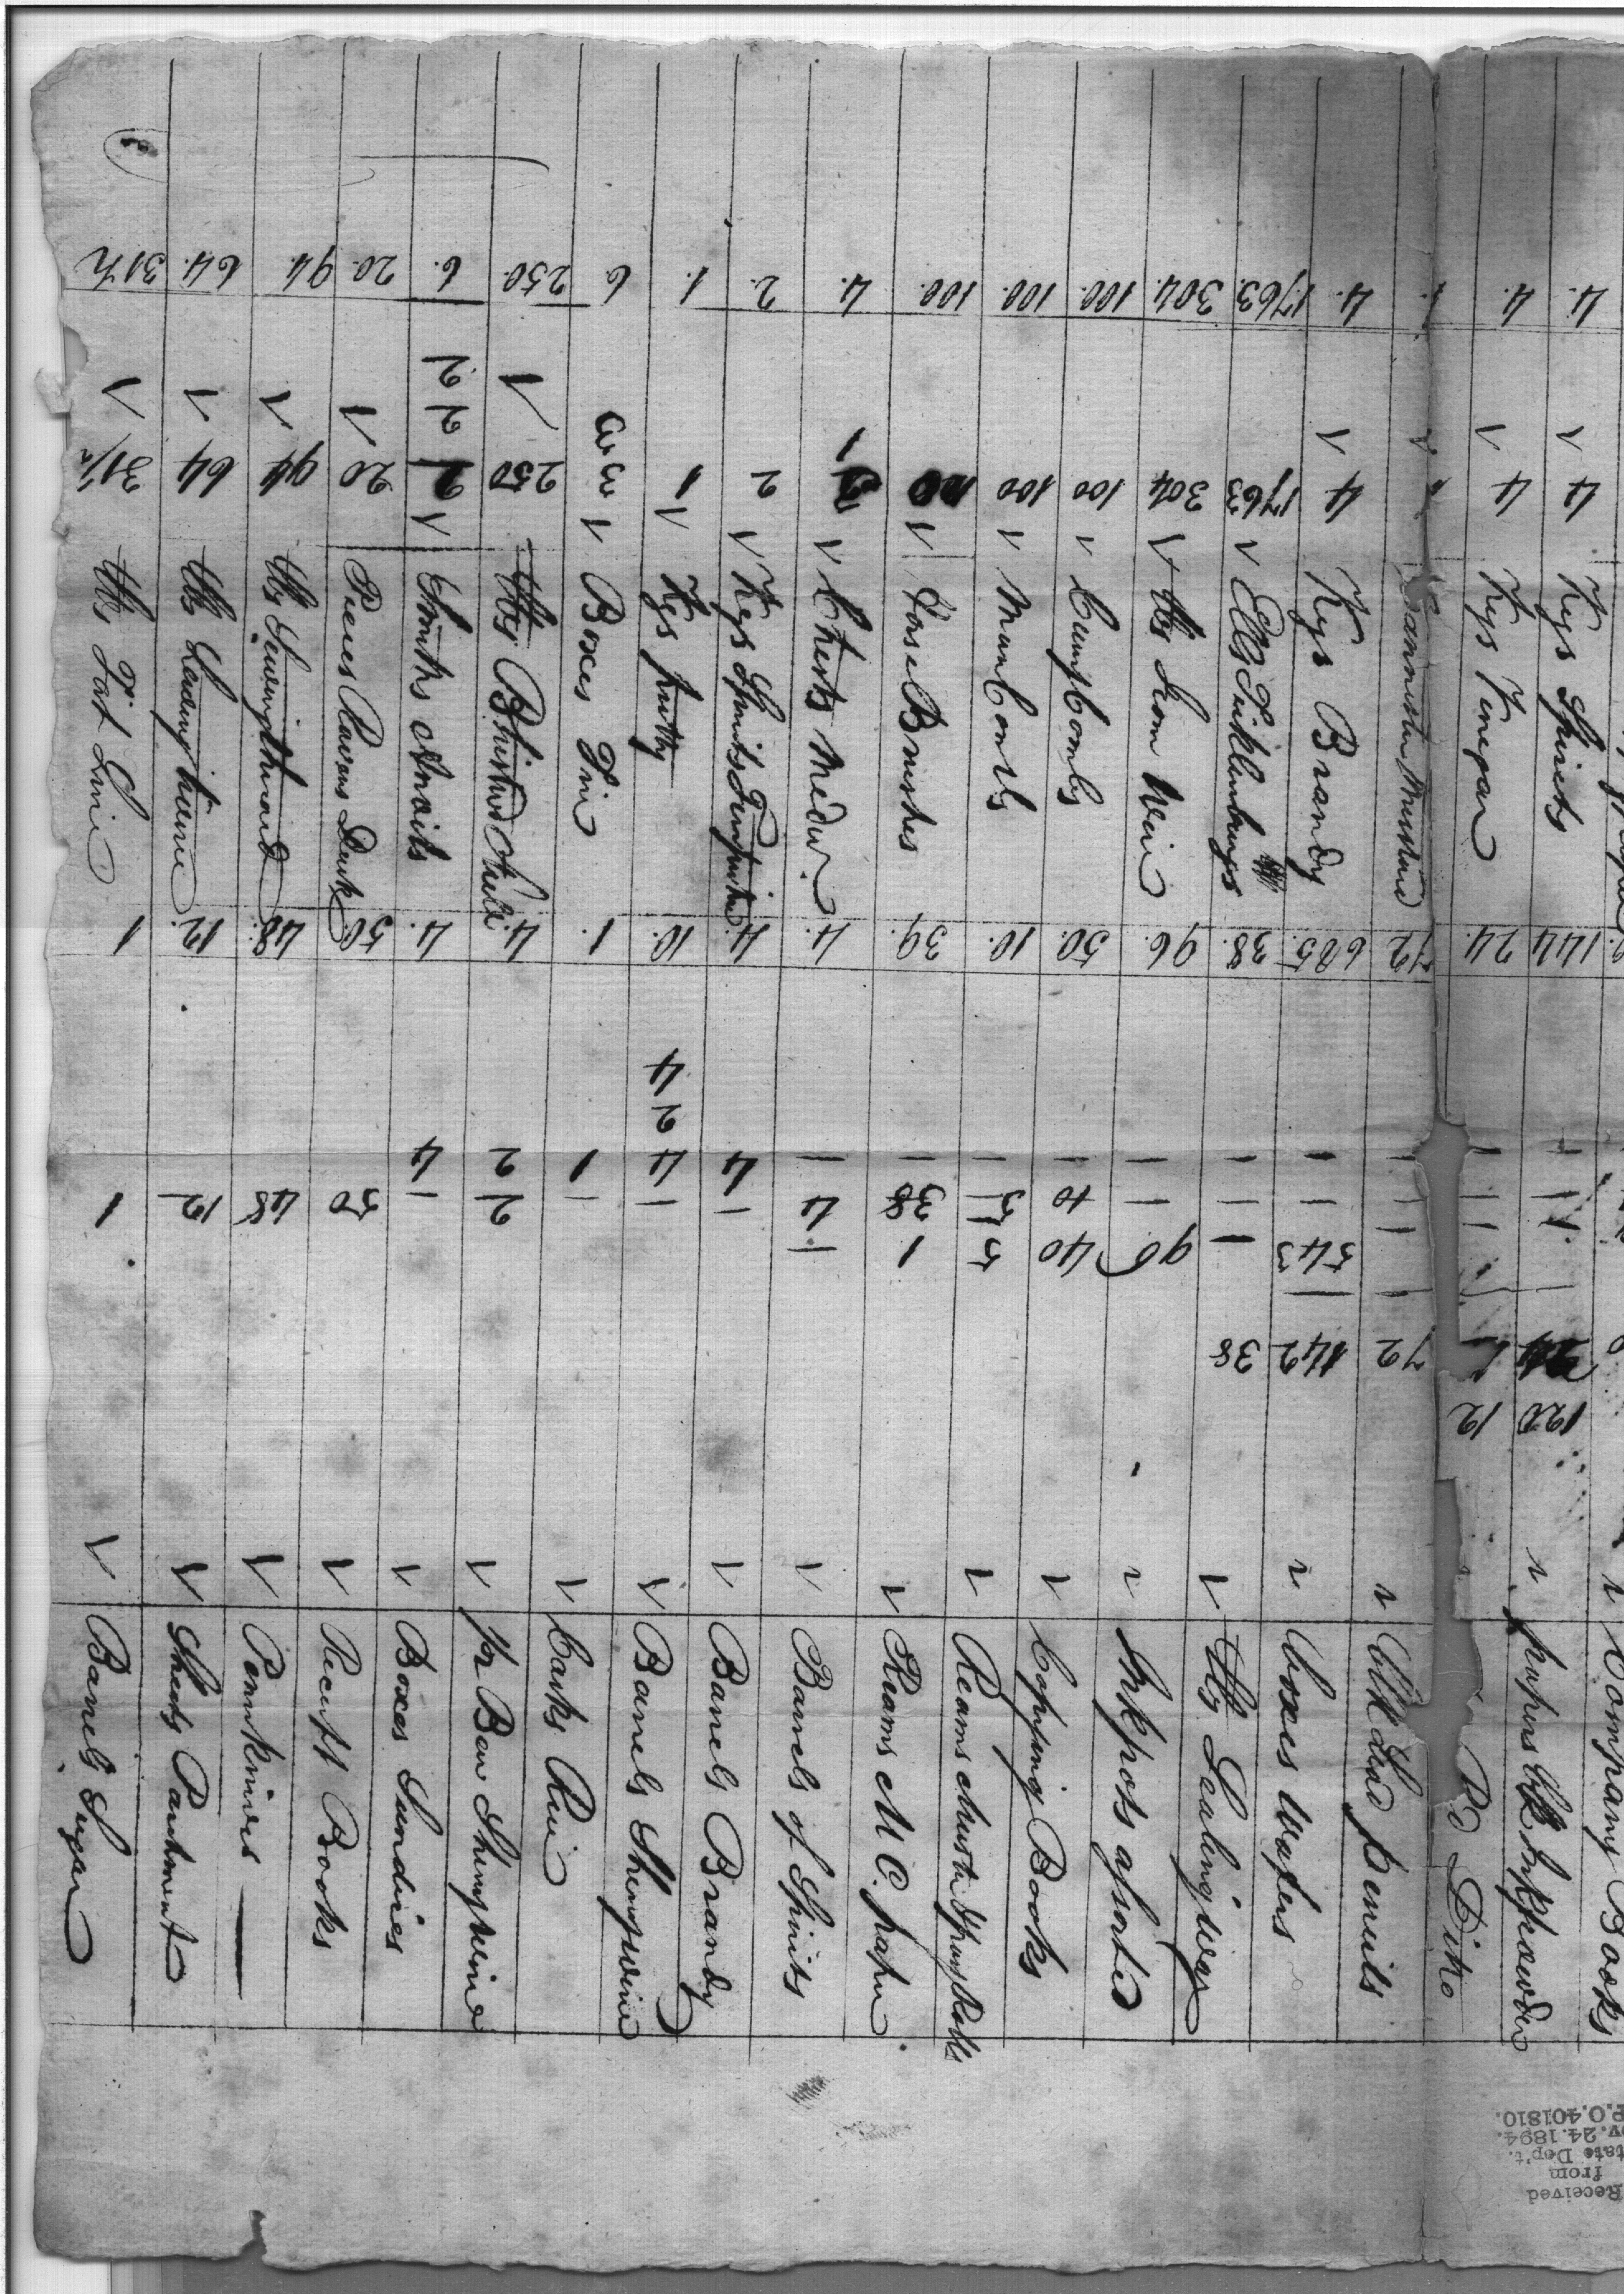 Company Books
4. 4 Kegs Spirits 144 24 120 papers Blk Inkpowder
4. 4 Kegs Vinegar 24. 12 Do Ditto
Cannister Mustard 72 — — — — 72 Blk Lead pencils
4. 4 Kegs Brandy 685. — — 543 — 142 boxes Wafers
1763. 1763 Ells Ticklenburgs 38. — — — 38 lbs Sealing Wax
304. 304 lbs Iron Weir 96. — — 96 Inkpots assorted
100. 100 Curry Combs 50. — 10 40 Copying Books
100. 100 Main Combs 10. — 5 5 Reams Muster & pay Rolls
100. Horse Brushes 39. — 38 1 Reams M C. paper
4. Chests Medn. 4. — 4 — Barrels of Spirits
2. 2 Kegs Spirits Turpentine 4. 4 — Barrels Brandy
1. 1 Kegs putty 10. 4 2 4 — Barrels Sherrywine
6 3 3 Boxes Tin 1. 1 — Casks Rice
250. 250 lbs Blistred Steele 4. 2 2 qr Bar Sherrywine
6. 2 2 2 Smiths Anvils 4. 4 — Boxes Sundries
20. 20 Pieces Ravens Duck 50. 50 Receipt Books
94. 94 lbs Sewingthread 48. 48 Pennknives
64. 64 lbs Seaming twine 12. 12 Sheets Parchment
31½ 31½ lbs 1 1 Barrels Sugar
Received
from
State Dep't.
Nov. 24. 1894.
R.P.O. 401810.